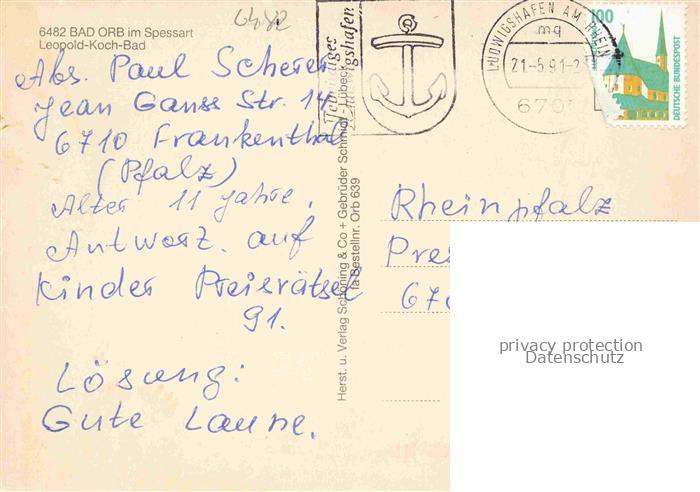 6482
6482 BAD ORB im Spessart
Leopold-Koch-Bad
Abs. Paul Scherer
Jean Ganss Str. 14
6710 Frankenthal
(Pfalz)
Alter 11 Jahre,
Antwort. auf
Kinder Preisrätsel
91.
Lösung:
Gute Laune.
Herst. u. Verlag Schöning & Co + Gebrüder Schmidt, Lübeck
Bestellnr. Orb 639
LUDWIGSHAFEN AM RHEIN
mq
21.-5.91-2
670
100
DEUTSCHE BUNDESPOST
Rheinpfalz
Pre
67
privacy protection
Datenschutz